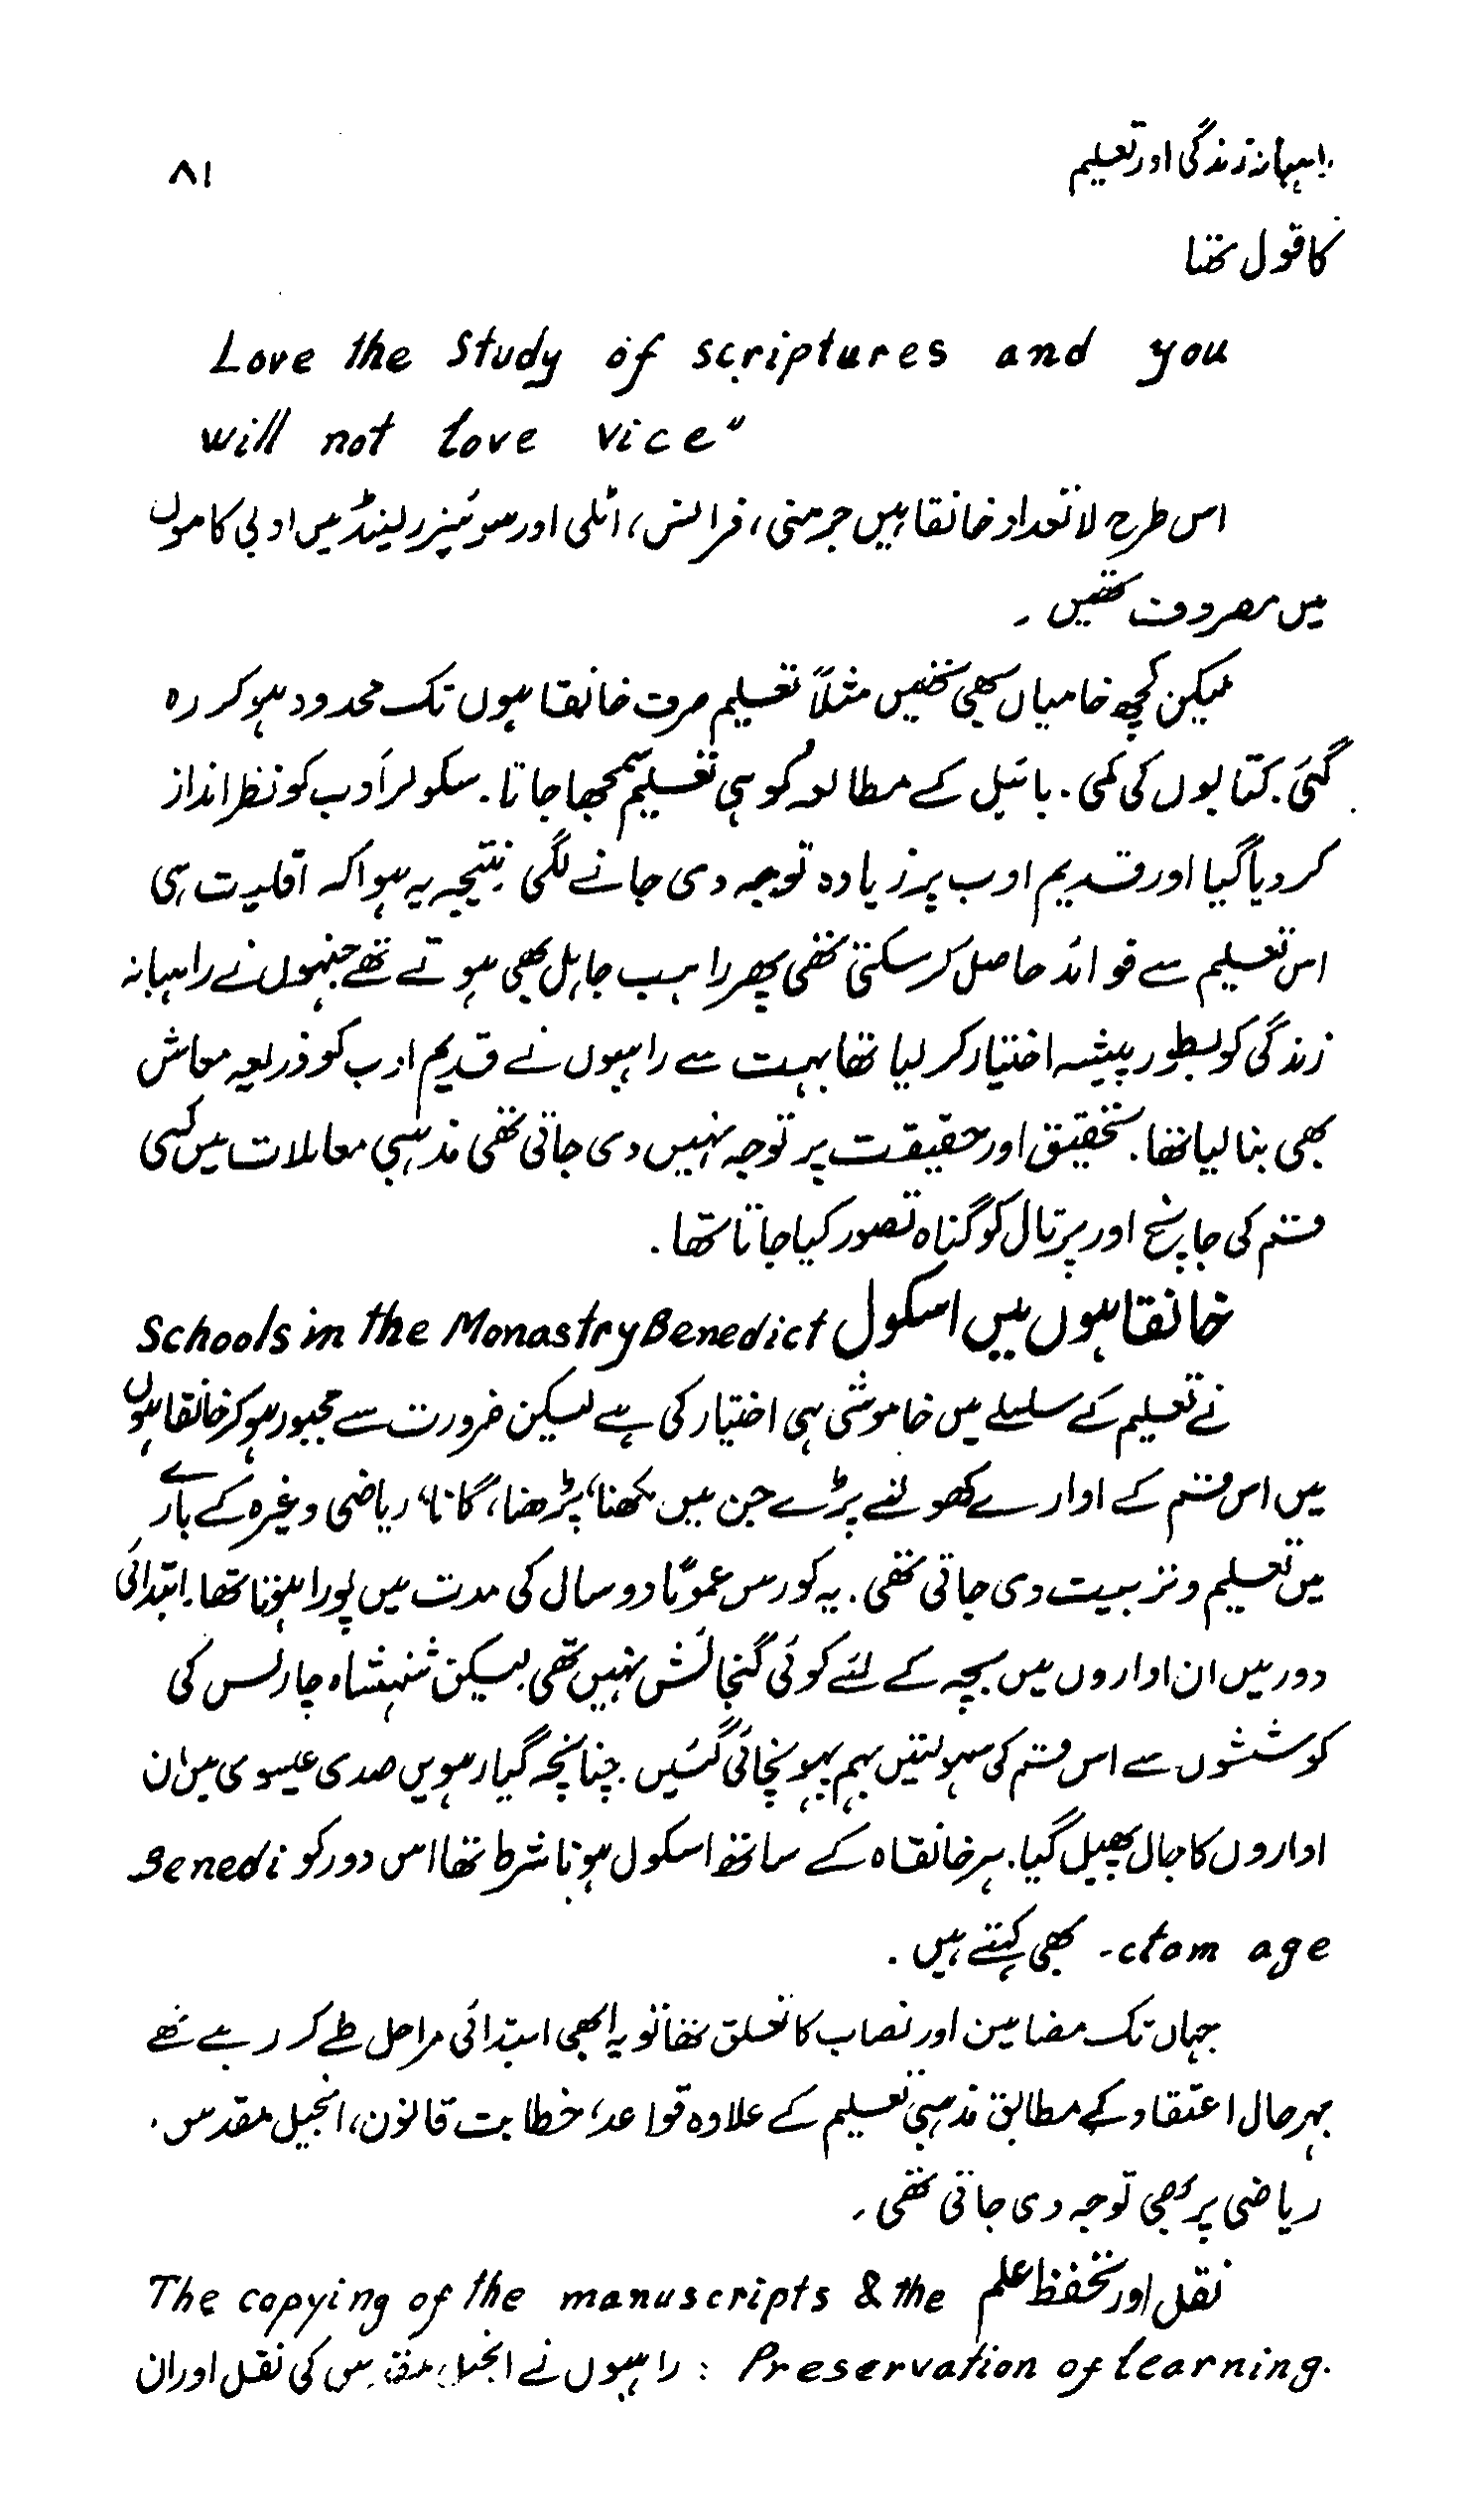 راہبانہ زندگی اور تعلیم ۸۱
کا قول تھا
Love the Study of scriptures and you
will not love vice"
اس طرح لا تعداد خانقاہیں جرمنی، فرانس، اٹلی اور سوئیزر لینڈ میں ادبی کاموں
میں مصروف تھیں۔
لیکن کچھ خامیاں بھی تھیں مثلاً تعلیم صرف خانقاہوں تک محدود ہو کر رہ
گئی۔ کتابوں کی کمی۔ بائبل کے مطالعہ کو ہی تعلیم سمجھا جاتا۔ سکولر ادب کو نظر انداز
کر دیا گیا اور قدیم ادب پر زیادہ توجہ دی جانے لگی۔ نتیجہ یہ ہوا کہ اقلیت ہی
اس تعلیم سے فوائد حاصل کر سکتی تھی پھر راہب جاہل بھی ہوتے تھے جنہوں نے راہبانہ
زندگی کو بطور پیشہ اختیار کر لیا تھا بہت سے راہبوں نے قدیم ادب کو ذریعہ معاش
بھی بنا لیا تھا۔ تحقیق اور حقیقت پر توجہ نہیں دی جاتی تھی مذہبی معاملات میں کسی
قسم کی جانچ اور پرتال کو گناہ تصور کیا جاتا تھا۔
خانقاہوں میں اسکول Schools in the Monastry Benedict
نے تعلیم کے سلسلے میں خاموشی ہی اختیار کی ہے لیکن ضرورت سے مجبور ہو کر خانقاہوں
میں اس قسم کے ادارے کھولنے پڑے جن میں لکھنا، پڑھنا، گانا، ریاضی وغیرہ کے بارے
میں تعلیم و تربیت دی جاتی تھی۔ یہ کورس عموماً دو سال کی مدت میں پورا ہوتا تھا۔ ابتدائی
دور میں ان اداروں میں بچہ کے لئے کوئی گنجائش نہیں تھی لیکن شہنشاہ چارلس کی
کوششوں سے اس قسم کی سہولتیں بہم پہونچائی گئیں۔ چنانچہ گیارہویں صدی عیسوی میں ان
اداروں کا جال پھیل گیا۔ ہر خانقاہ کے ساتھ اسکول ہونا شرط تھا اس دور کو Benedi
-ctom age بھی کہتے ہیں۔
جہاں تک مضامین اور نصاب کا تعلق تھا تو یہ ابھی ابتدائی مراحل طے کر رہے تھے
بہرحال اعتقاد کے مطابق مذہبی تعلیم کے علاوہ قواعد، خطابت قانون، انجیل مقدس،
ریاضی پر بھی توجہ دی جاتی تھی۔
نقل اور تحفظ علم The copying of the manuscripts & the
Preservation of learning. : راہبوں نے انجیل مقدس کی نقل اور ان